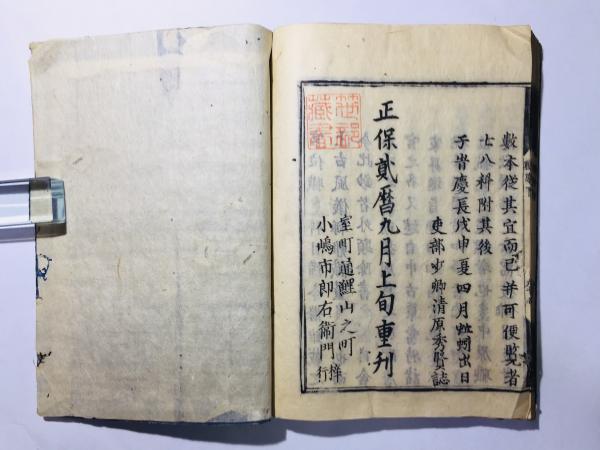 數本從其宜而已并可便覽者
七八科附其後
于旹慶長戊申夏四月蚯蚓出日
吏部少卿清原秀賢誌
正保貳曆九月上旬重刋
室町通鯉山之町
小嶋市郎右衞門
梓行
藏書